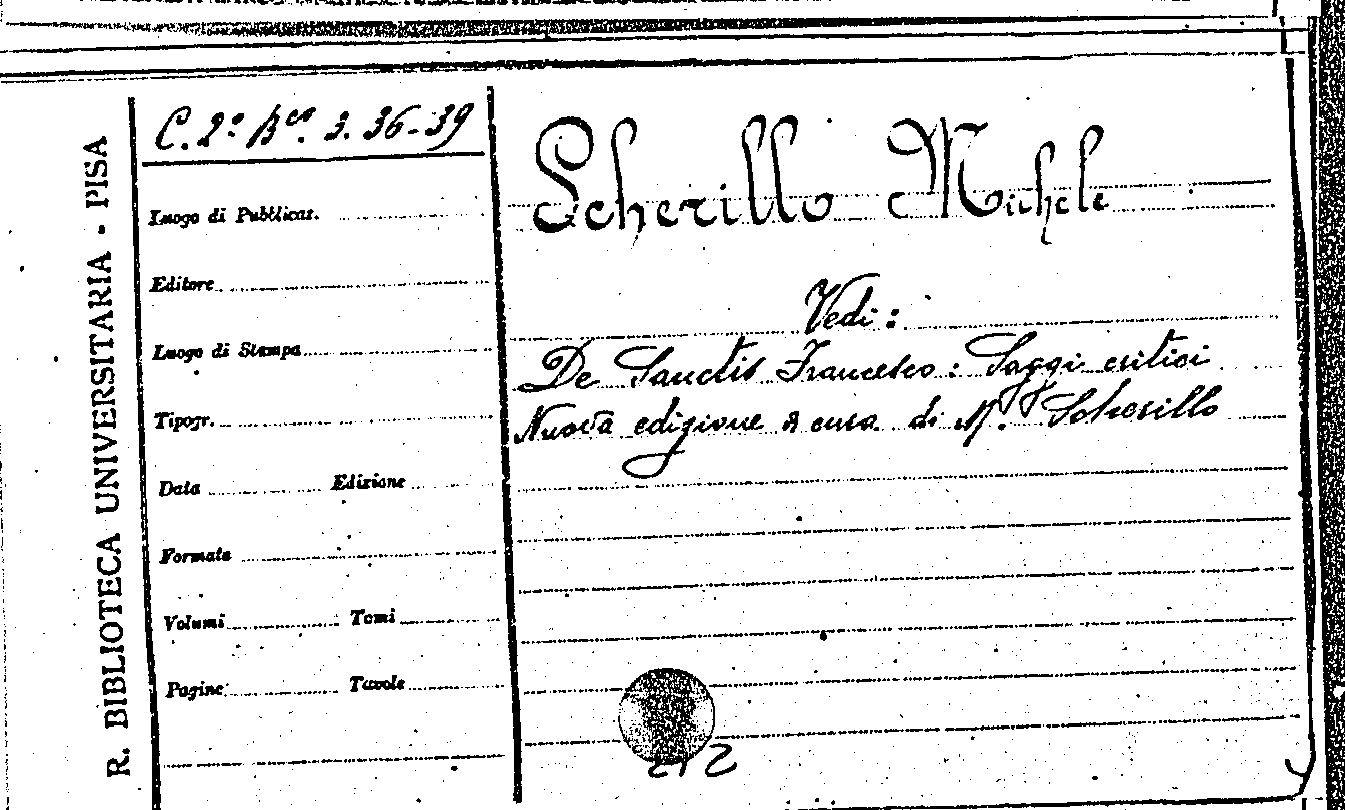 R. BIBLIOTECA UNIVERSITARIA - PISA
C. 2º Bcº. 3. 36-39
Luogo di Pubblicaz.
Editore
Luogo di Stampa
Tipogr.
Data Edizione
Formato
Volumi Tomi
Pagine Tavole
Scherillo Michele
Vedi:
De Sanctis Francesco: Saggi critici
Nuova edizione a cura di M. Scherillo